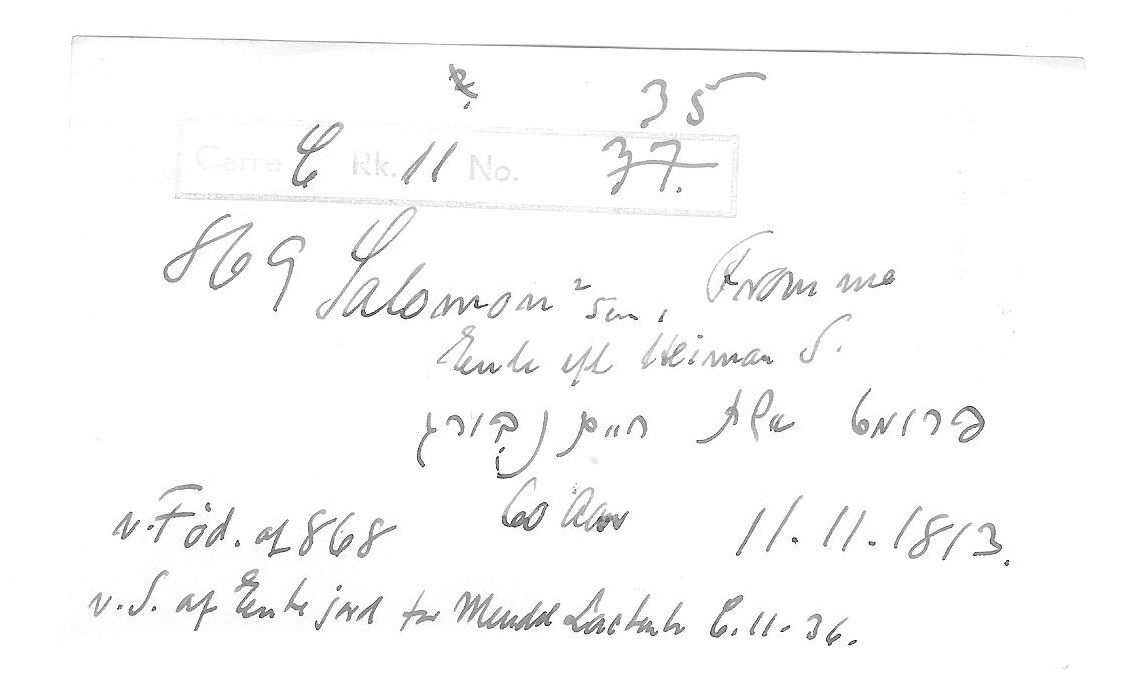 35
Carre C Rk. 11 No. 37.
869 Salomon² sen, Fromme
Enke eft Heiman S.
פרומט אלמ׳ היימן
60 Aar 11.11.1813.
v. Föd. af 868
v. S. af Enke jord for Mendel C. 11-36.